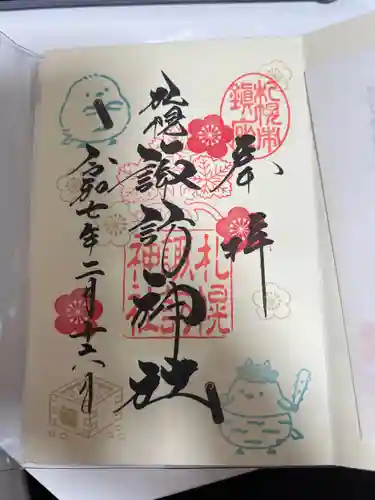 奉拝
札幌市
鎮座
札幌
諏訪神社
札幌
諏訪
神社
令和七年二月十六日